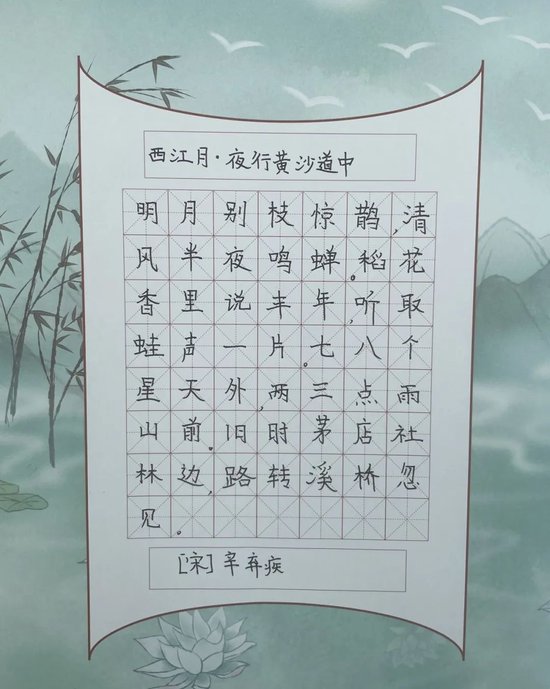 西江月·夜行黄沙道中
明月别枝惊鹊,清
风半夜鸣蝉。稻花
香里说丰年,听取
蛙声一片。七八个
星天外,两三点雨
山前。旧时茅店社
林边,路转溪桥忽
见。
[宋]辛弃疾